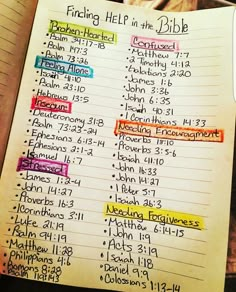 Finding HELP in the Bible
Broken-Hearted
• Psalm 34:17-18
• Psalm 147:3
• Psalm 73:26
Feeling Alone
• Isaiah 41:10
• Psalm 23
• Hebrews 13:5
Insecure
• Deuteronomy 31:8
• Psalm 73:23-24
• Ephesians 6:13-14
• Ephesians 2:1-2
Samuel 16:7
Stressed
• James 1:2-4
• John 14:27
• Proverbs 16:3
• Corinthians 3:11
• Luke 21:19
• Psalm 94:19
• Matthew 11:28
• Philippians
• Romans 8:28
Confused
• Matthew 7:7
• 2 Timothy 4:12
• Galatians 2:20
• James 1:6
• John 3:36
• John 6:35
• Isaiah 40:31
• 1 Corinthians 14:33
Needing Encouragement
• Proverbs 18:10
• Proverbs 3:5-6
• Isaiah 41:10
• John 16:33
• John 14:27
• 1 Peter 5:7
• Isaiah
Needing Forgiveness
• Matthew 6:14-15
• 1 John 1:9
• Acts 3:19
• Isaiah 1:18
• Daniel 9:9
• Colossians 1:13-14